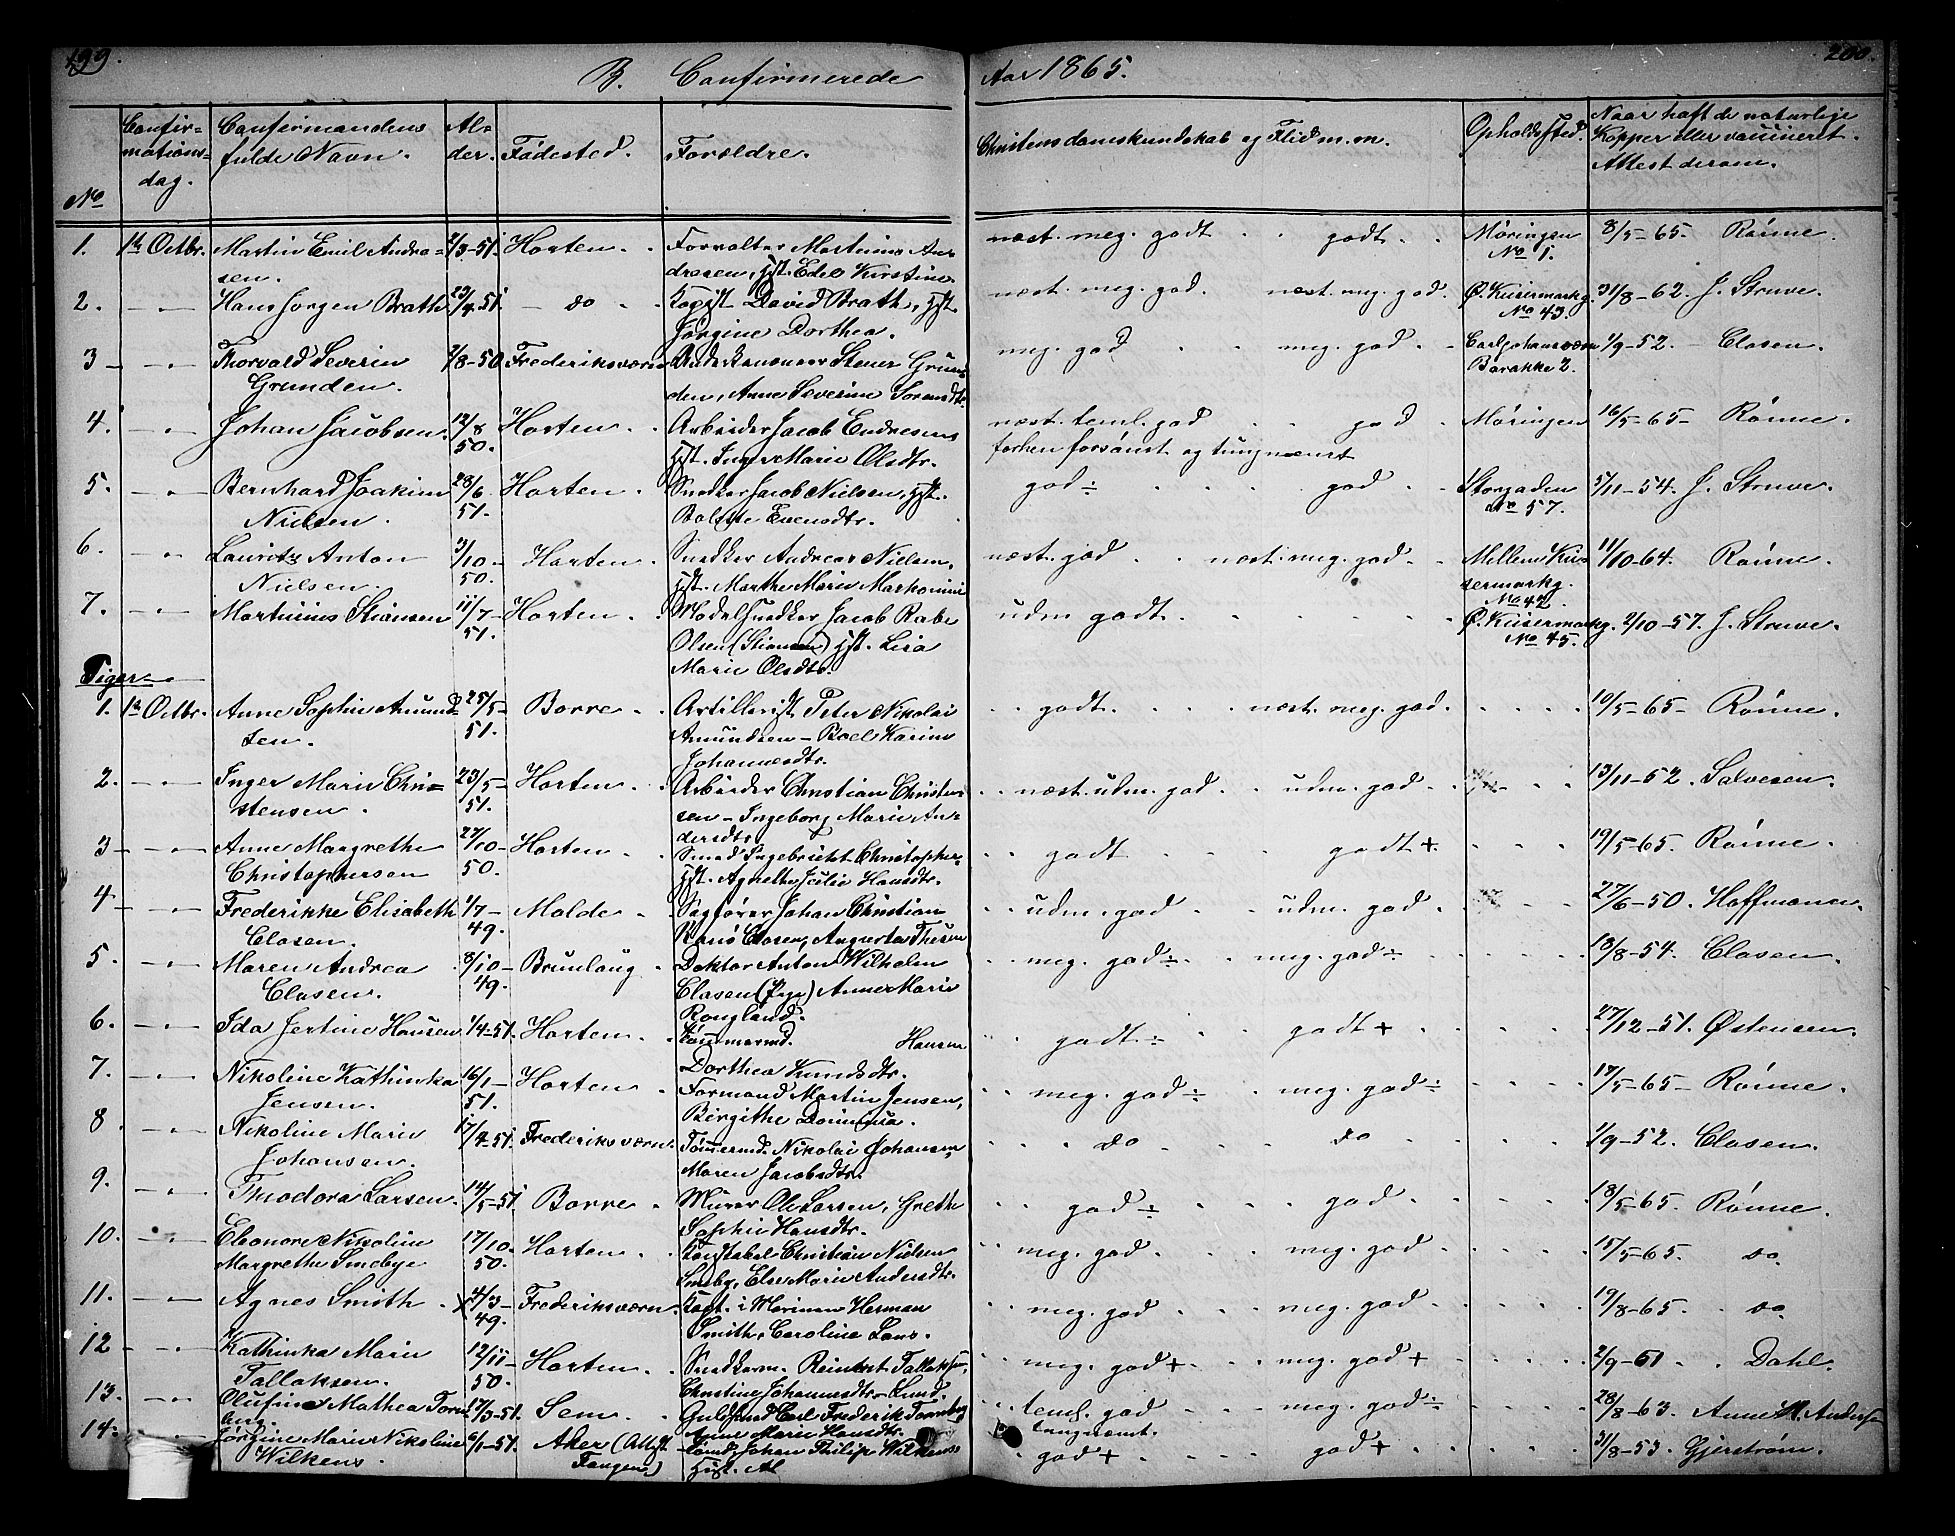 199.
200.
B. Confirmerede
Aar 1865.
No
Confirmationsdag.
Confirmandens fulde Navn.
Alder.
Fødested.
Forældre.
Christendomskundskab og Flid m.m.
Opholdssted.
Naar haft de naturlige Kopper eller vaccineret. Attest derom.
1. 1te Octbr. Martin Emil Andre- 3-51. Horten. Forvalter Martinius An- næst. meg. godt godt. Møringen 8/5-65. Rønne.
sen. dresen, Hst. Kirstine No 1.
2. Hans Jørgen Brath 23/4 51. do Kopist David Brath, Hst. næst. meg. god. næst. meg. god. Ø. Keisermarkg. 31/8-62. J. Struve.
Jørgine Dorthea. No 43.
3 Thorvald Severin 7/8-50 Frederiksværn Stener Grun- meg. god meg. god Carljohansværn 1/9-52. Clasen.
Grunden. den, Anne Severine Barakke 2.
4. Johan Jacobsen. 12/8 Horten Arbeider Jacob Endresen næst. teml. god god Møringen 16/5-65- Rønne.
50. Hst. Inger Marie Olsdtr. forhen forsømt og tungnemt
5. Bernhard Joakim 28/6 Horten Snedker Jacob Nielsen, Hst. god ÷ god Storgaden 5/11-54. J. Struve.
Nielsen. 51. Evensdtr. No 57.
6. Lauritz Anton 3/10- Horten Snedker Andreas Nielsen, næst. god næst. meg. god Mellem Kei- 11/10-64. Rønne.
Nielsen. 50. Hst. Marthe Marie sermarkg.
No 42.
7. Martinius Stiansen 11/7- Horten Modelsnedker Jacob Rabe udm godt. Ø. Keisermarkg. 2/10-57. J. Struve.
51. Olsen (Stiansen) Hst. Lisa No 45.
Marie Olsdtr.
Piger
1. 1te Octbr. Anne Sophie Amund- 25/5- Borre Artillerist Peter Nikolai godt. næst. meg. god. 10/5-65- Rønne.
sen. 51. Amundsen - Boel Karine
Johannesdtr.
2. Inger Marie Chri- 23/5- Horten Arbeider Christian Christen- næst. udm. god. udm. god 13/11-52. Salvesen.
stensen. 51. sen - Ingeborg Marie An-
dersdtr.
3 Anne Margrethe 27/10- Horten Smed Ingebricht Christophers. godt godt + 19/5-65. Rønne.
Christophersen 50. Hst. Agnethe Julie Hansdtr.
4 Frederikke Elisabeth 1/7- Molde Sagfører Johan Christian udm. god udm. god 27/6-50. Hoffmann.
Clasen. 49. Clasen, Augusta
5. Maren Andrea 8/10- Brunlaug Doktor Anton Wilhelm meg. god ÷ meg. god ÷ 18/8-54. Clasen.
Clasen. 49. Clasen Anne Marie
6. Ida Jertine Hansen 1/4-51. Horten Tømmermd. Hansen godt ÷ godt + 27/12-51. Østensen.
Dorthea Knudsdtr.
7. Nikoline Kathinka 16/1- Horten Formand Martin Jensen, meg. god ÷ meg. god ÷ 18/5-65- Rønne.
Jensen. 51. Birgithe
8 Nikoline Marie 17/4-51. Frederiksværn Tømmermd. Nikolai Johansen do do 1/9-52. Clasen.
Johansen. Maren Jacobsdtr.
9. Theodora Larsen 14/5-51 Borre Murer Ole Larsen, Grethe god ÷ god 18/5-65 Rønne.
Sophie Hansdtr.
10. Eleonore Nikoline 17/10. Horten Konstabel Christian Nielsen meg. god meg. god 15/5-65. do
Margrethe Smebye 50. Smeby, Else Marie Andersdtr.
11. Agnes Smith x 4/3- Frederiksværn Kapt. i Marinen Herman meg. god meg. god 19/8-65. do
49. Smith, Caroline
12 Kathinka Marie 12/11- Horten Snedkerm. Reinert Tallaksen, meg. god + meg. god + 2/9-61 Dahl.
Tallaksen. 50. Christine Johannesdtr. Lund.
13. Olufine Mathea Torn- 17/3-51. Sem. Guldsmed Carl Frederik Tornberg teml. god meg. god ÷ 28/8-63. Anne M. Anders
Anne Marie Hansdtr. tungnemt.
14. Jørgine Marie Nikoline 6/1-51. Aker (Attest Johan Philip Wilkens god + god + 31/8-53. Gjerstrøm.
Wilkens. Tangen) Hst.